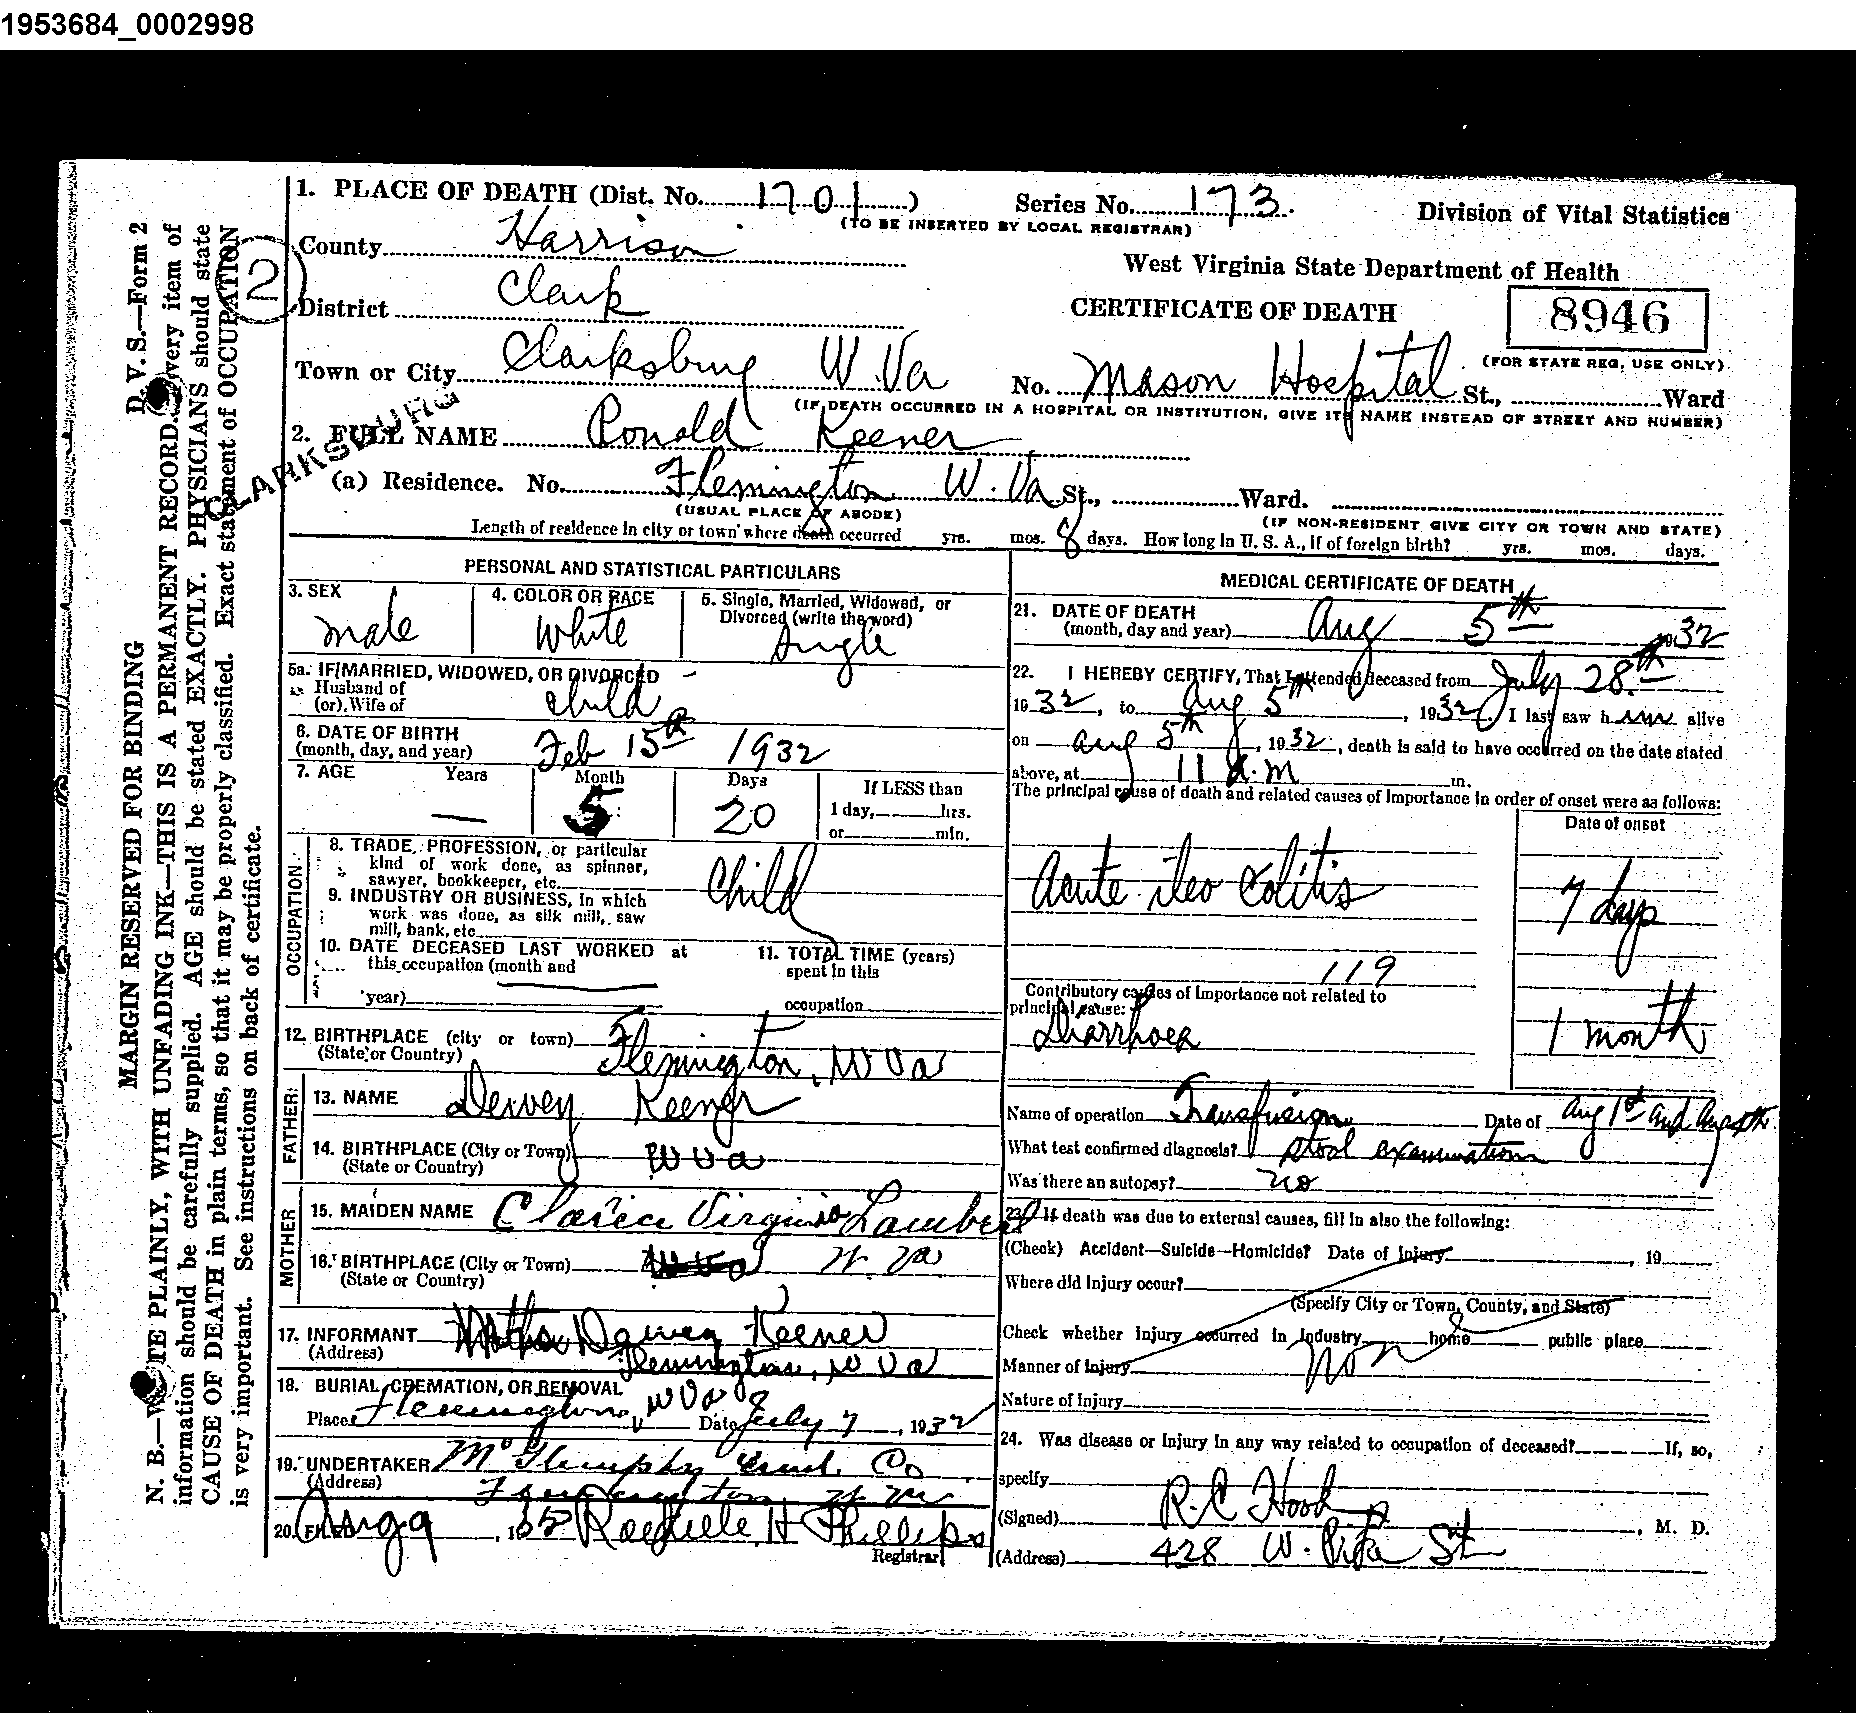 1953684_0002998
1. PLACE OF DEATH (Dist. No. 1701) Series No. 173. Division of Vital Statistics
(TO BE INSERTED BY LOCAL REGISTRAR)
County Harrison West Virginia State Department of Health
District Clark CERTIFICATE OF DEATH 8946
(FOR STATE REG. USE ONLY)
Town or City Clarksburg W. Va No. Mason Hospital St., Ward
(IF DEATH OCCURRED IN A HOSPITAL OR INSTITUTION, GIVE ITS NAME INSTEAD OF STREET AND NUMBER)
2. FULL NAME Ronald Keener
CLARKSBURG
(a) Residence. No. Flemington W. Va St., Ward.
(USUAL PLACE OF ABODE) (IF NON-RESIDENT GIVE CITY OR TOWN AND STATE)
Length of residence in city or town where death occurred yrs. mos. 8 days. How long in U. S. A., if of foreign birth? yrs. mos. days.
PERSONAL AND STATISTICAL PARTICULARS
3. SEX 4. COLOR OR RACE 5. Single, Married, Widowed, or
Divorced (write the word)
male White Single
5a. IF MARRIED, WIDOWED, OR DIVORCED
Husband of
(or) Wife of child
6. DATE OF BIRTH
(month, day, and year) Feb 15th 1932
7. AGE Years Month Days If LESS than
— 5 20 1 day, hrs.
or min.
OCCUPATION
8. TRADE, PROFESSION, or particular
kind of work done, as spinner,
sawyer, bookkeeper, etc. Child
9. INDUSTRY OR BUSINESS, in which
work was done, as silk mill, saw
mill, bank, etc.
10. DATE DECEASED LAST WORKED at 11. TOTAL TIME (years)
this occupation (month and spent in this
year) occupation
12. BIRTHPLACE (city or town)
(State or Country) Flemington, W Va
FATHER
13. NAME Dewey Keener
14. BIRTHPLACE (City or Town)
(State or Country) W Va
MOTHER
15. MAIDEN NAME Clarice Virginia Lambert
16. BIRTHPLACE (City or Town) W. Va
(State or Country)
17. INFORMANT Dewey Keener
(Address) Flemington, W Va
18. BURIAL, CREMATION, OR REMOVAL
Place Flemington, W Va Date July 7, 1932
19. UNDERTAKER Co
(Address) Flemington W. Va
20. FILED Aug 9, 19 H Phillips
Registrar
MEDICAL CERTIFICATE OF DEATH
21. DATE OF DEATH
(month, day and year) Aug 5th 1932
22. I HEREBY CERTIFY, That I attended deceased from July 28th
1932, to Aug 5th, 1932. I last saw him alive
on Aug 5th, 1932, death is said to have occurred on the date stated
above, at 11 a.m m.
The principal cause of death and related causes of importance in order of onset were as follows:
Date of onset
Acute ileo Colitis 7 days
119
Contributory causes of importance not related to
principal cause:
Diarrhoea 1 month
Name of operation Transfusion Date of Aug 1st and Aug 4th
What test confirmed diagnosis? stool examination
Was there an autopsy? no
23. If death was due to external causes, fill in also the following:
(Check) Accident—Suicide—Homicide? Date of injury , 19
Where did injury occur?
(Specify City or Town, County, and State)
Check whether injury occurred in industry home public place
Manner of injury
Nature of injury
24. Was disease or injury in any way related to occupation of deceased? If, so,
specify
(Signed) R. C. Hood, M. D.
(Address) 428 W. Pike St
D. V. S.—Form 2
2
MARGIN RESERVED FOR BINDING
N. B.—WRITE PLAINLY, WITH UNFADING INK—THIS IS A PERMANENT RECORD. Every item of
information should be carefully supplied. AGE should be stated EXACTLY. PHYSICIANS should state
CAUSE OF DEATH in plain terms, so that it may be properly classified. Exact statement of OCCUPATION
is very important. See instructions on back of certificate.